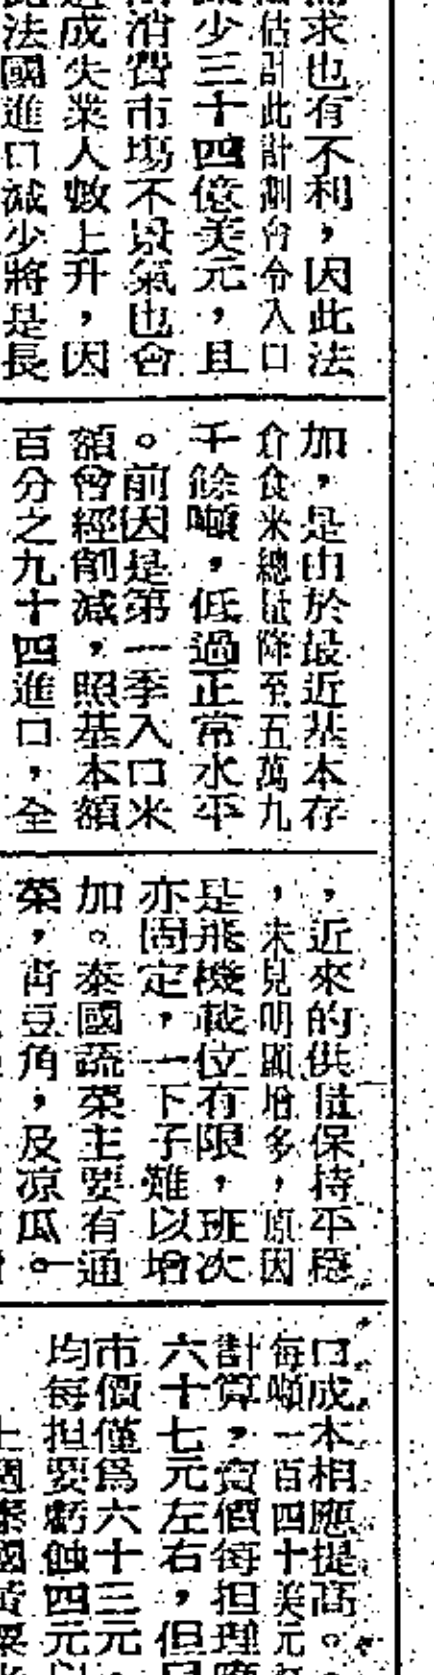 求也有不利，因此法
估計此計劃會令入口
少三十四億美元，且
消費市場不景氣也會
成失業人數上升，因
法國進口減少將是長
加，是由於最近基本存
倉食米總量降至五萬九
千餘噸，低過正常水平
。前因是第一季入口米
額曾經削減，照基本額
百分之九十四進口，全
，近來的供量保持平穩
，未見明顯增多，原因
是飛機載位有限，班次
亦固定，一下子難以增
加。泰國蔬菜主要有通
菜，青豆角，及凉瓜。
口成本相應提高。
每噸一百四十美元
計算，賣價每担理應
六十七元左右，但
市價僅爲六十三元，
均每担要虧蝕四元以
上週泰國黃粟米